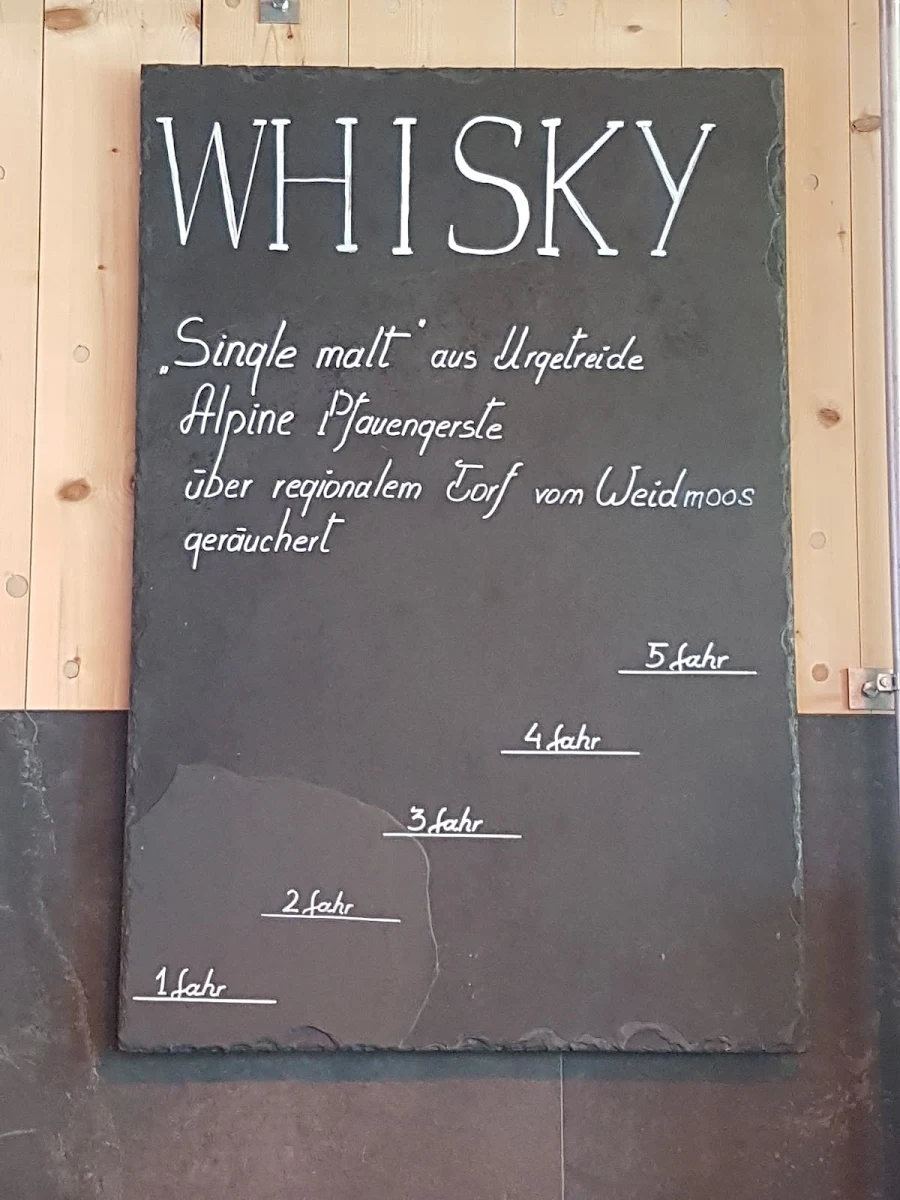 WHISKY
„Single malt“ aus Urgetreide
Alpine Pfauengerste
über regionalem Torf vom Weidmoos
geräuchert
5 Jahr
4 Jahr
3 Jahr
2 Jahr
1 Jahr